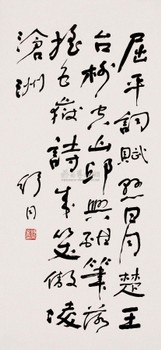 屈平詞賦懸日月楚王
台榭空山邱興酣筆落
搖五嶽詩成笑傲凌
滄洲
舒同